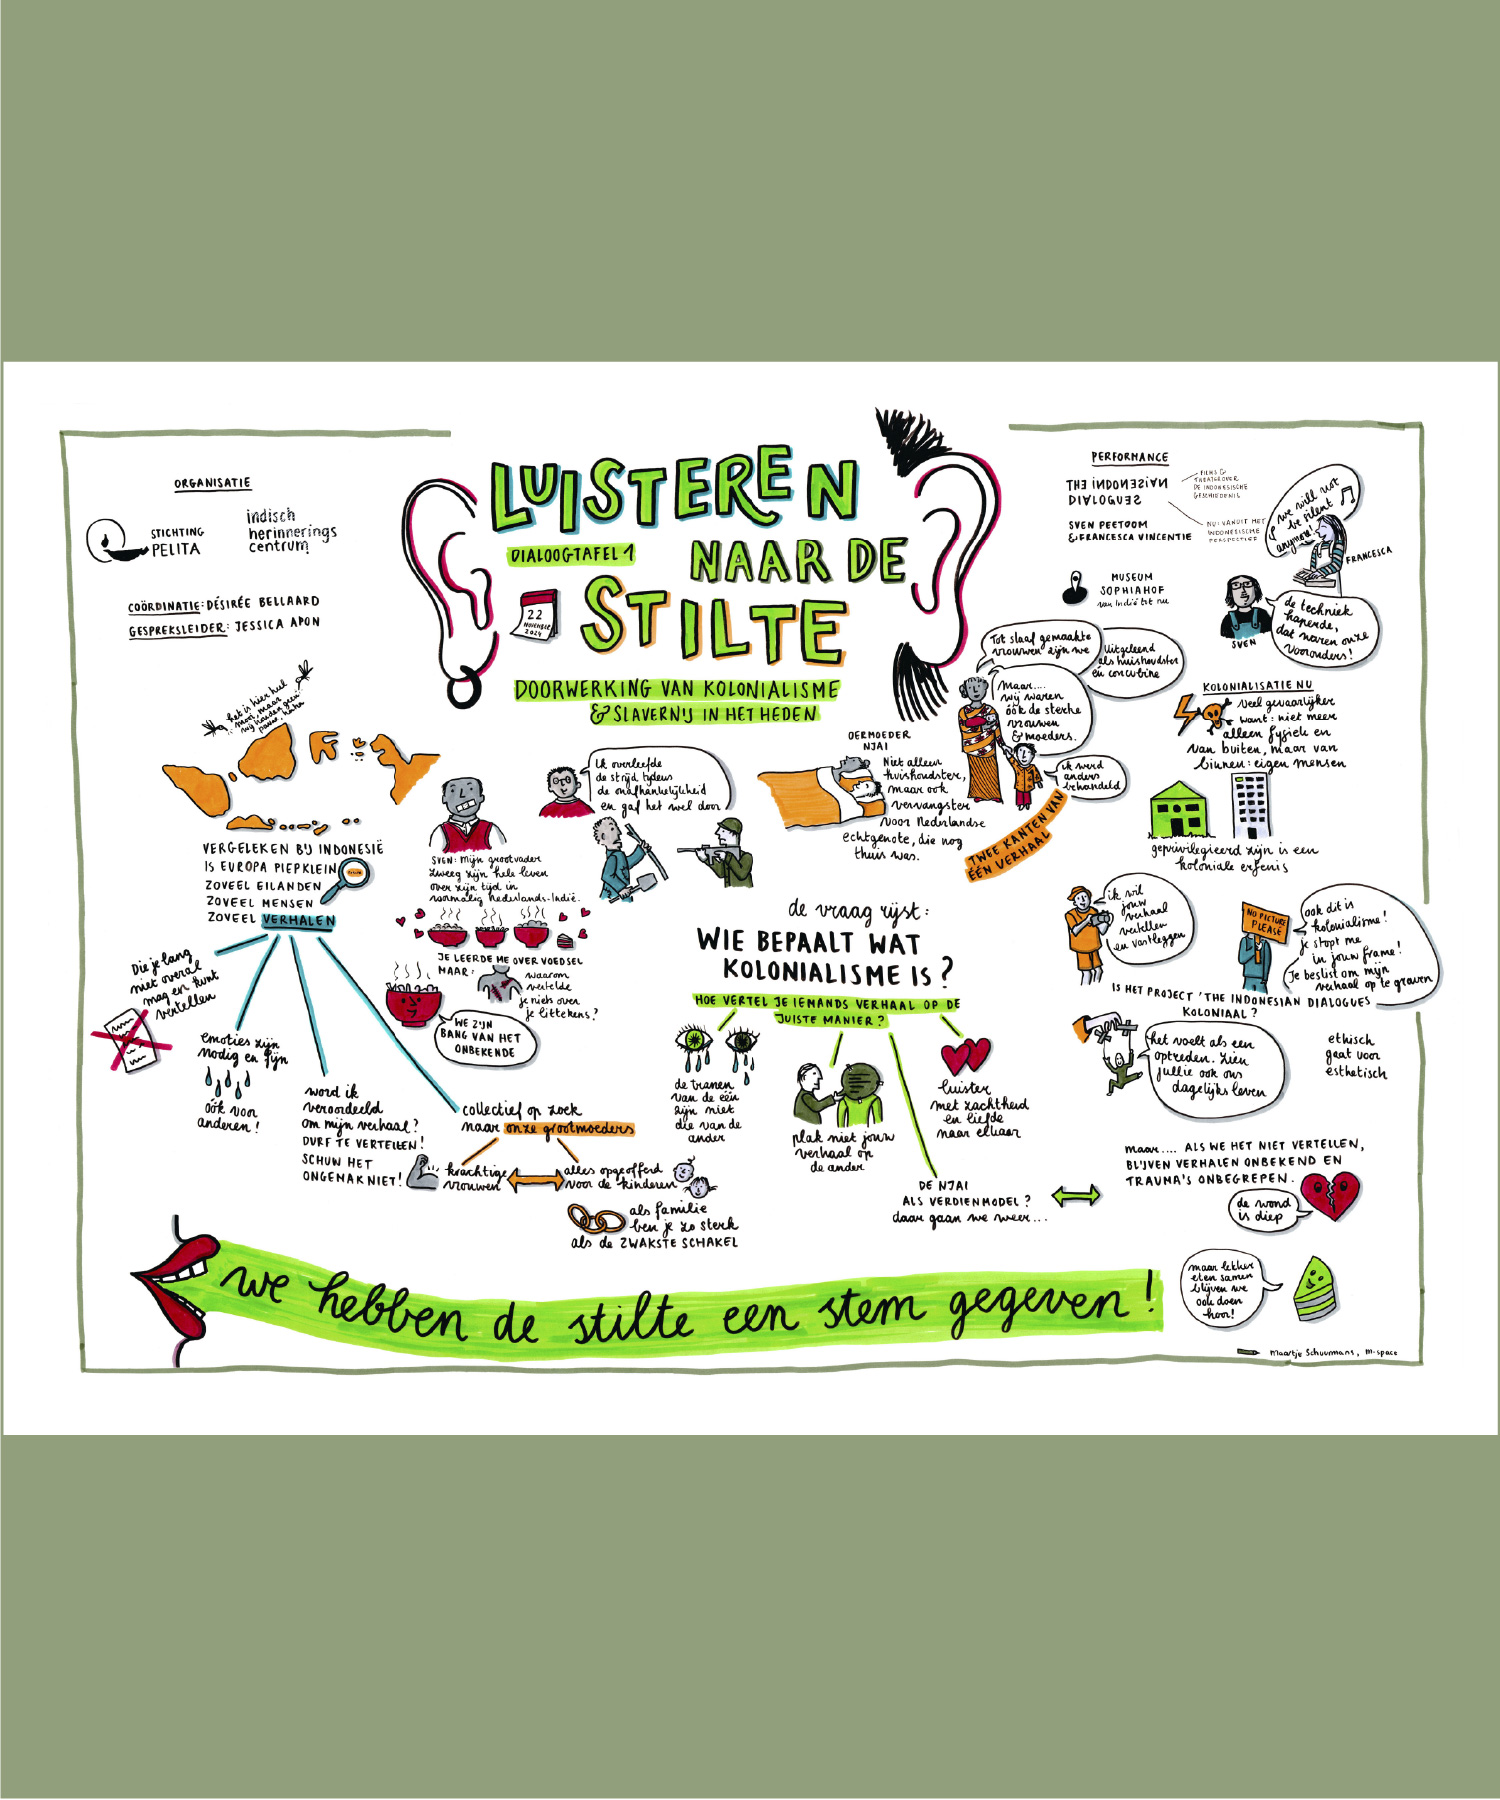 ORGANISATIE
STICHTING
PELITA
indisch
herinnerings
centrum
COÖRDINATIE: DÉSIRÉE BELLAARD
GESPREKSLEIDER: JESSICA APON
LUISTEREN
DIALOOGTAFEL 1
NAAR DE
22
NOVEMBER
2024
STILTE
DOORWERKING VAN KOLONIALISME
& SLAVERNIJ IN HET HEDEN
PERFORMANCE
THE INDONESIAN
DIALOGUES
FILMS &
THEATER OVER
DE INDONESISCHE
GESCHIEDENIS
NU: VANUIT HET
INDONESISCHE
PERSPECTIEF
SVEN PEETOOM
& FRANCESCA VINCENTIE
MUSEUM
SOPHIAHOF
van Indië tot nu
we will not
be silent
anymore!
FRANCESCA
SVEN
de techniek
haperde,
dat waren onze
voorouders!
het is hier heel
mooi, maar
wij houden geen
VERGELEKEN BIJ INDONESIË
IS EUROPA PIEPKLEIN
ZOVEEL EILANDEN
ZOVEEL MENSEN
ZOVEEL VERHALEN
Die je lang
niet overal
mag en kunt
vertellen
emoties zijn
nodig en fijn
óók voor
anderen!
word ik
veroordeeld
om mijn verhaal?
DURF TE VERTELLEN!
SCHUW HET
ONGEMAK NIET!
collectief op zoek
naar onze grootmoeders
krachtige
vrouwen
alles opgeofferd
voor de kinderen
als familie
ben je zo sterk
als de ZWAKSTE SCHAKEL
SVEN: mijn grootvader
zweeg zijn hele leven
over zijn tijd in
voormalig Nederlands-Indië.
JE LEERDE ME OVER VOEDSEL
MAAR:
waarom
vertelde
je niets over
je littekens?
WE ZIJN
BANG VAN HET
ONBEKENDE
ik overleefde
de strijd tijdens
de onafhankelijkheid
en gaf het wel door
OERMOEDER
NJAI
Niet alleen
huishoudster,
maar ook
vervangster
voor Nederlandse
echtgenote, die nog
thuis was.
Tot slaaf gemaakte
vrouwen zijn we
Uitgeleend
als huishoudster
en concubine
Maar....
wij waren
óók de sterke
vrouwen
& moeders.
ik werd
anders
behandeld
TWEE KANTEN VAN
ÉÉN VERHAAL
de vraag rijst:
WIE BEPAALT WAT
KOLONIALISME IS?
HOE VERTEL JE IEMANDS VERHAAL OP DE
JUISTE MANIER?
de tranen
van de één
zijn niet
die van de
ander
plak niet jouw
verhaal op
de ander
luister
met zachtheid
en liefde
naar elkaar
DE NJAI
ALS VERDIENMODEL?
daar gaan we weer...
KOLONIALISATIE NU
veel gevaarlijker
want: niet meer
alleen fysiek en
van buiten, maar van
binnen: eigen mensen
geprivilegieerd zijn is een
koloniale erfenis
ik wil
jouw
verhaal
vertellen
en vastleggen
NO PICTURE
PLEASE
ook dit is
kolonialisme!
je stopt me
in jouw frame!
Je beslist om mijn
verhaal op te graven
IS HET PROJECT 'THE INDONESIAN DIALOGUES
KOLONIAAL?
het voelt als een
optreden. Zien
jullie ook ons
dagelijks leven
ethisch
gaat voor
esthetisch
maar.... ALS WE HET NIET VERTELLEN,
BLIJVEN VERHALEN ONBEKEND EN
TRAUMA'S ONBEGREPEN.
de wond
is diep
maar lekker
eten samen
blijven we
ook doen
hoor!
we hebben de stilte een stem gegeven!
Maartje Schuurmans, M-space